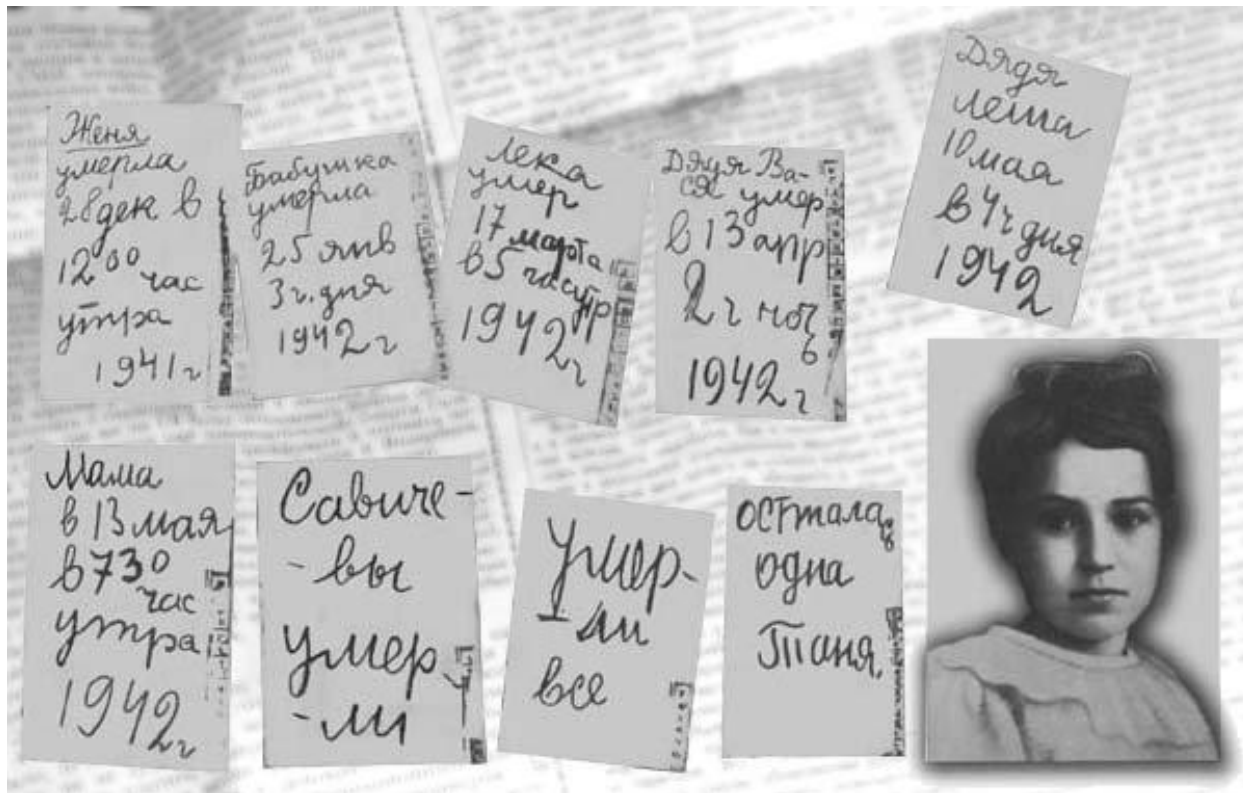 Женя
умерла
28 дек в
12 00 час
утра
1941 г
Бабушка
умерла
25 янв
3 ч. дня
1942 г
Лека
умер
17 марта
в 5 час утр
1942 г
Дядя Ва-
ся умер
в 13 апр
2 ч ноч
ь
1942 г
Дядя
Леша
10 мая
в 4 ч дня
1942
Мама
в 13 мая
в 7 30
час
утра
1942 г
Савиче-
-вы
умер
-ли
Умер-
ли
все
осталась
одна
Таня.